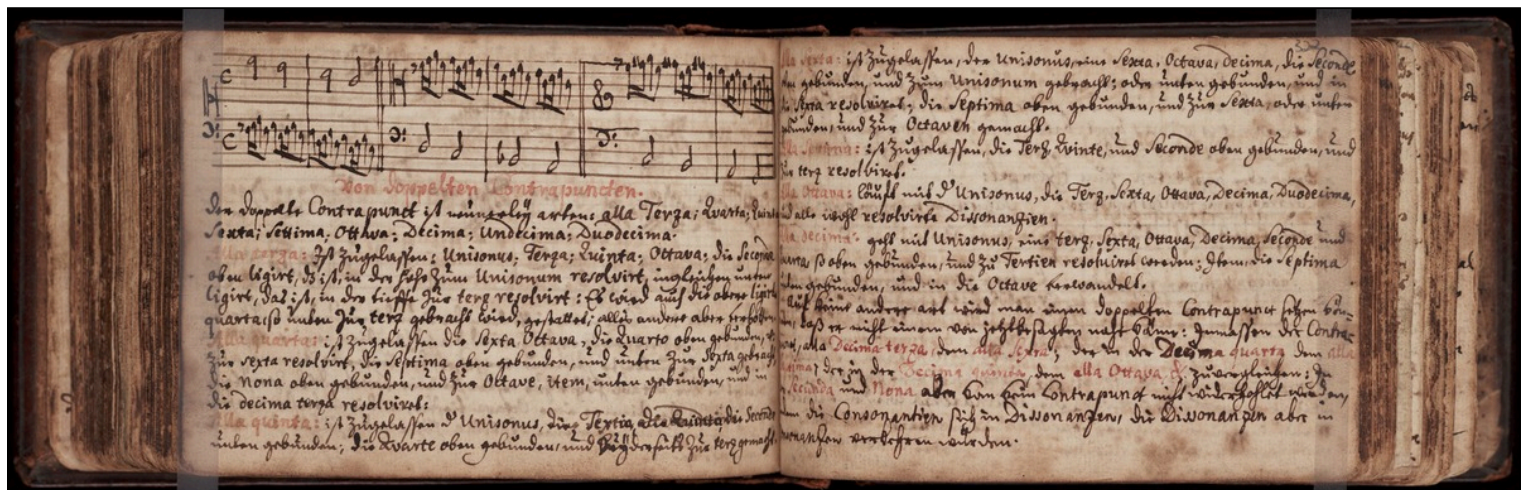 Von doppelten Contrapuncten.
Der doppelte Contrapunct ist neunerley arten: alla Terza; Quarta; Quinta
Sexta; Settima; Ottava; Decima; Undecima; Duodecima.
Alla terza: Ist zugelassen: Unisonus; Terza; Quinta; Ottava; die Seconda
oben ligirt, das ist, in der Höhe zum Unisonum resolvirt, ingleichen unten
ligirt, das ist, in der tieffe zur terz resolvirt: Es wird auch die obere ligirte
quarta, so unten zur terz gebracht wird, gestattet; alles andere aber
Alla quarta: ist zugelassen die Sexta, Ottava, die Quarto oben gebunden,
zur sexta resolvirt, die Septima oben gebunden, und unten zur Sexta gebracht
die Nona oben gebunden, und zur Octave, item, unten gebunden, und in
die decima terza resolviret:
Alla quinta: ist zugelassen d' Unisonus, die Tertia, die Seconde
unten gebunden; die Quarte oben gebunden, und beyderseits zur terz gemacht.
alla Sexta: ist zugelassen, der Unisonus, eine Sexta, Octava, Decima, die Seconde
gebunden, und zum Unisonum gebracht; oder unten gebunden, und in
Sexta resolviret; die Septima oben gebunden, und zur Sexta, oder unten
gebunden, und zur Octaven gemacht.
ist zugelassen, die Terz, Quinte, und Seconde oben gebunden, und
zur terz resolviret.
alla Ottava: läufft mit d' Unisonus, die Terz, Sexta, Ottava, Decima, Duodecima,
und alle wohl resolvirte Dissonanzien.
alla decima: geht mit Unisonus, eine terz, Sexta, Ottava, Decima, Seconde und
quarta, so oben gebunden, und zu Tertien resolviret werden; Item, die Septima
unten gebunden, und in die Octave verwandelt.
Auf keine andere art wird man einen doppelten Contrapunct setzen kön-
nen, daß er nicht einem von jetztbesagten nahe käme: Immassen der Contra-
alla Decima terza, dem alla Sexta; der in der Decima quarta dem alla
der in der Decima quinta, dem alla Ottava zu vergleichen; In
Secunda und Nona aber kan kein Contrapunct nicht wiederhohlet werden,
die Consonantien sich in Dissonanzien, die Dissonanzen aber in
Consonanzen verkehren würden.